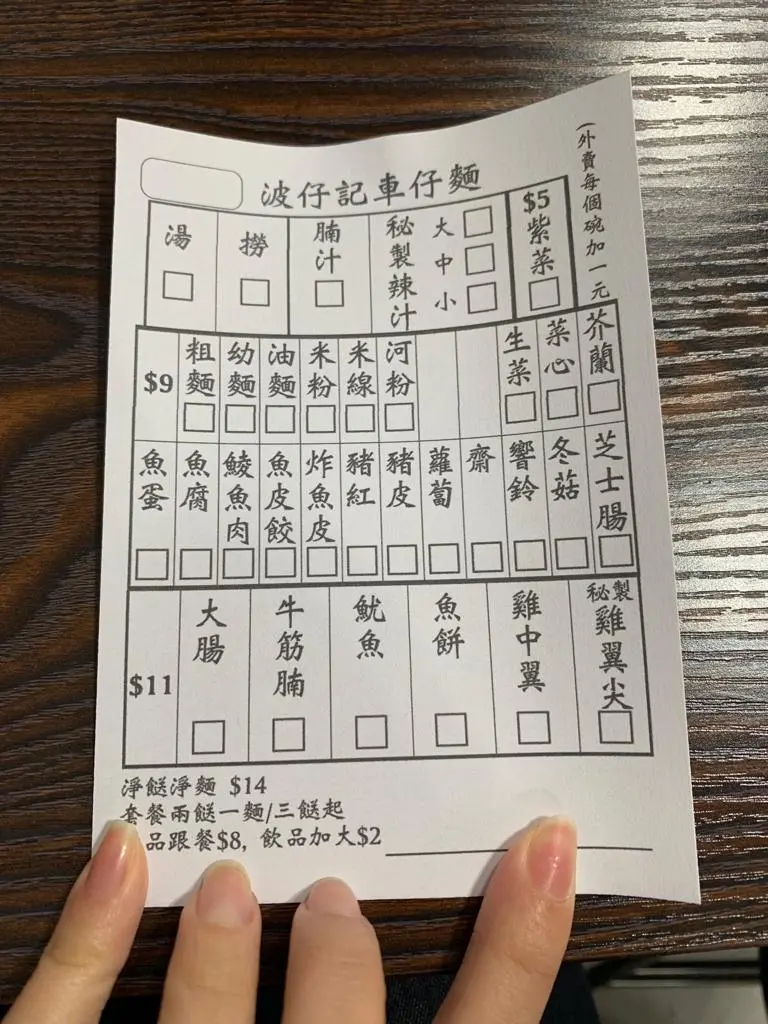 波仔記車仔麵
(外賣每個碗加一元
湯
撈
腩汁
秘製辣汁
大
中
小
$5
紫菜
$9
粗麵
幼麵
油麵
米粉
米線
河粉
生菜
菜心
芥蘭
魚蛋
魚腐
鯪魚肉
魚皮餃
炸魚皮
豬紅
豬皮
蘿蔔
齋
響鈴
冬菇
芝士腸
$11
大腸
牛筋腩
魷魚
魚餅
雞中翼
秘製雞翼尖
淨餸淨麵 $14
套餐兩餸一麵/三餸起
品跟餐$8, 飲品加大$2